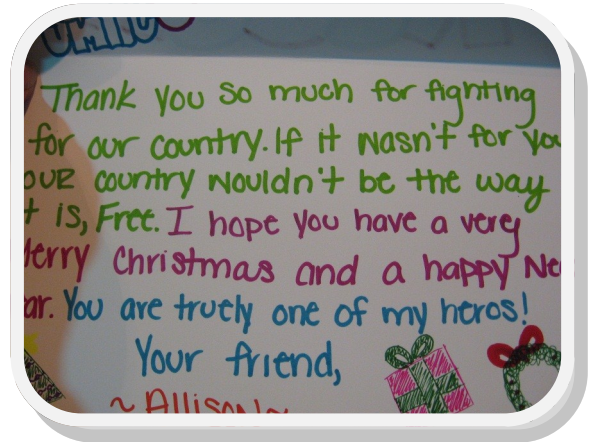 Thank you so much for fighting
for our country. If it wasn't for you
our country wouldn't be the way
it is, Free. I hope you have a very
Merry Christmas and a happy New
ear. You are truely one of my heros!
Your friend,
~Allison~